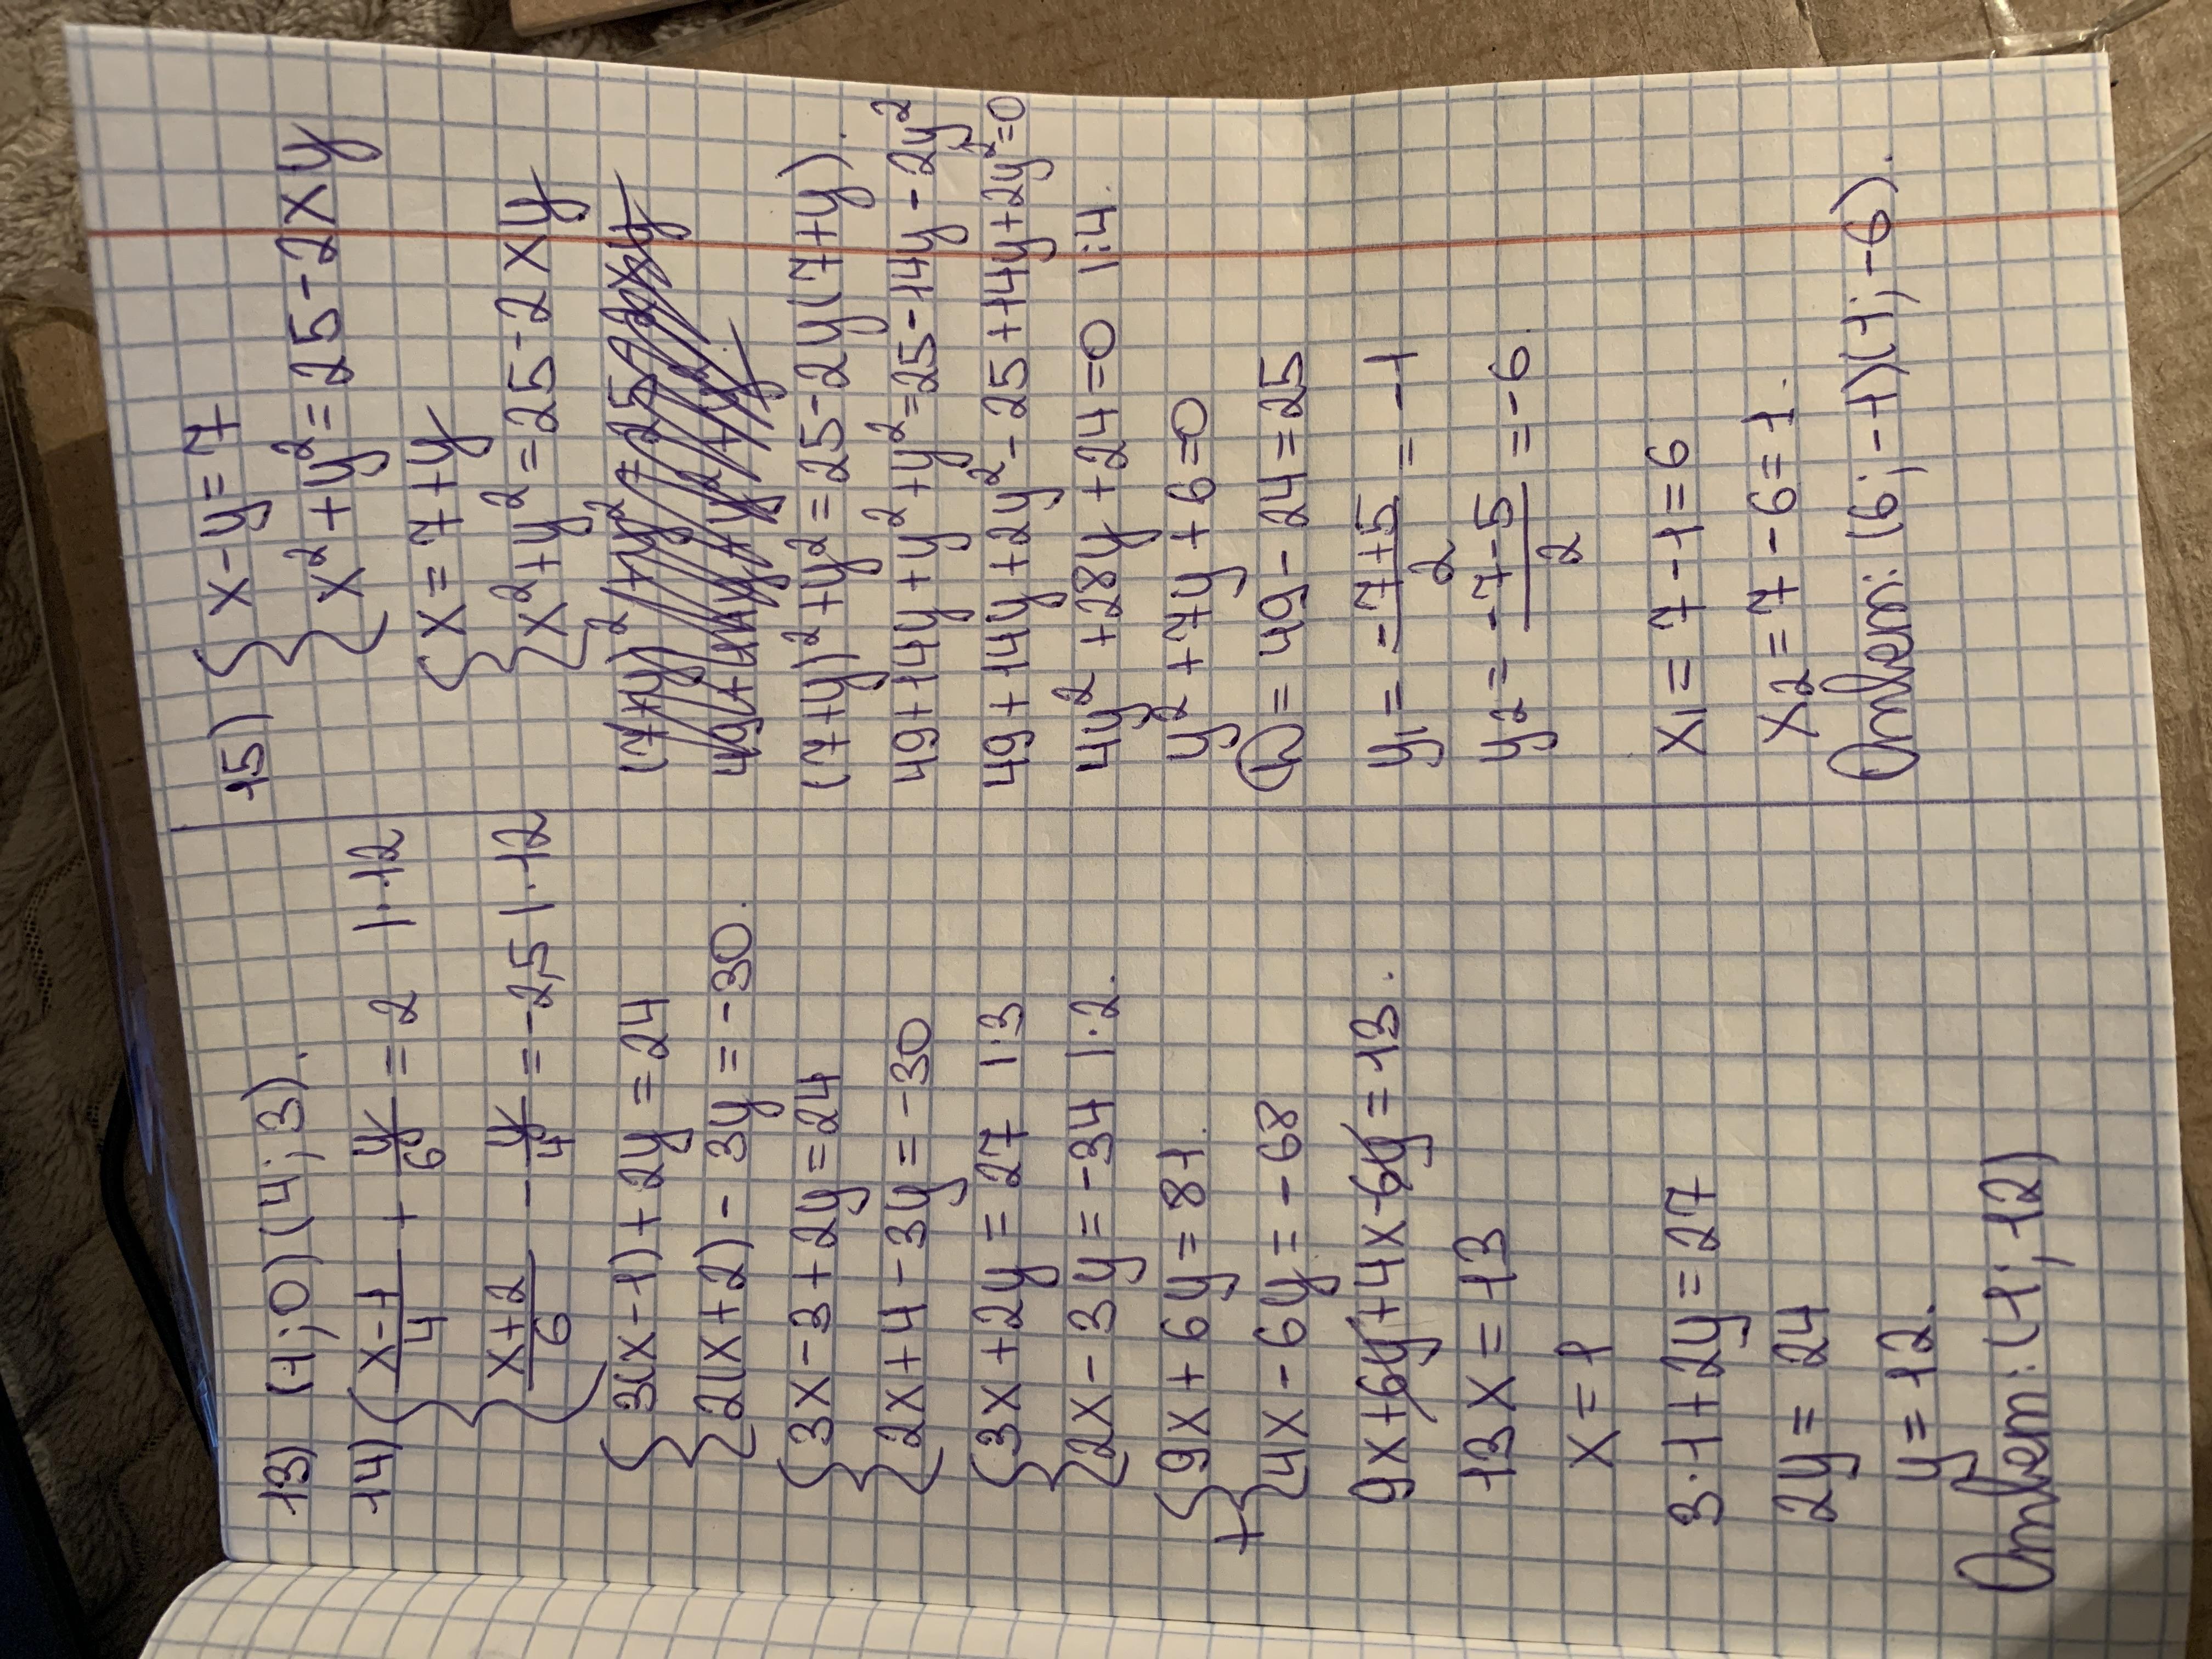 13) (1;0)(4;3).
14) { (x-1)/4 + y/6 = 2 |·12
(x+2)/6 - y/4 = -2,5 |·12
{ 3(x-1)+2y=24
2(x+2)-3y=-30.
{ 3x-3+2y=24
2x+4-3y=-30
{ 3x+2y=27 |·3
2x-3y=-34 |·2.
+ { 9x+6y=81.
4x-6y=-68
9x+6y+4x-6y=13.
13x=13
x=1
3·1+2y=27
2y=24
y=12.
Ответ: (1;12)
15) { x-y=7
x²+y²=25-2xy
{ x=7+y
x²+y²=25-2xy
(7+y)²+y²=25-2xy
(7+y)²+y²=25-2y(7+y).
49+14y+y²+y²=25-14y-2y²
49+14y+2y²-25+14y+2y²=0
4y²+28y+24=0 |:4.
y²+7y+6=0
D=49-24=25
y₁=(-7+5)/2=-1
y₂=(-7-5)/2=-6.
x₁=7-1=6
x₂=7-6=1.
Ответ: (6;-1)(1;-6).